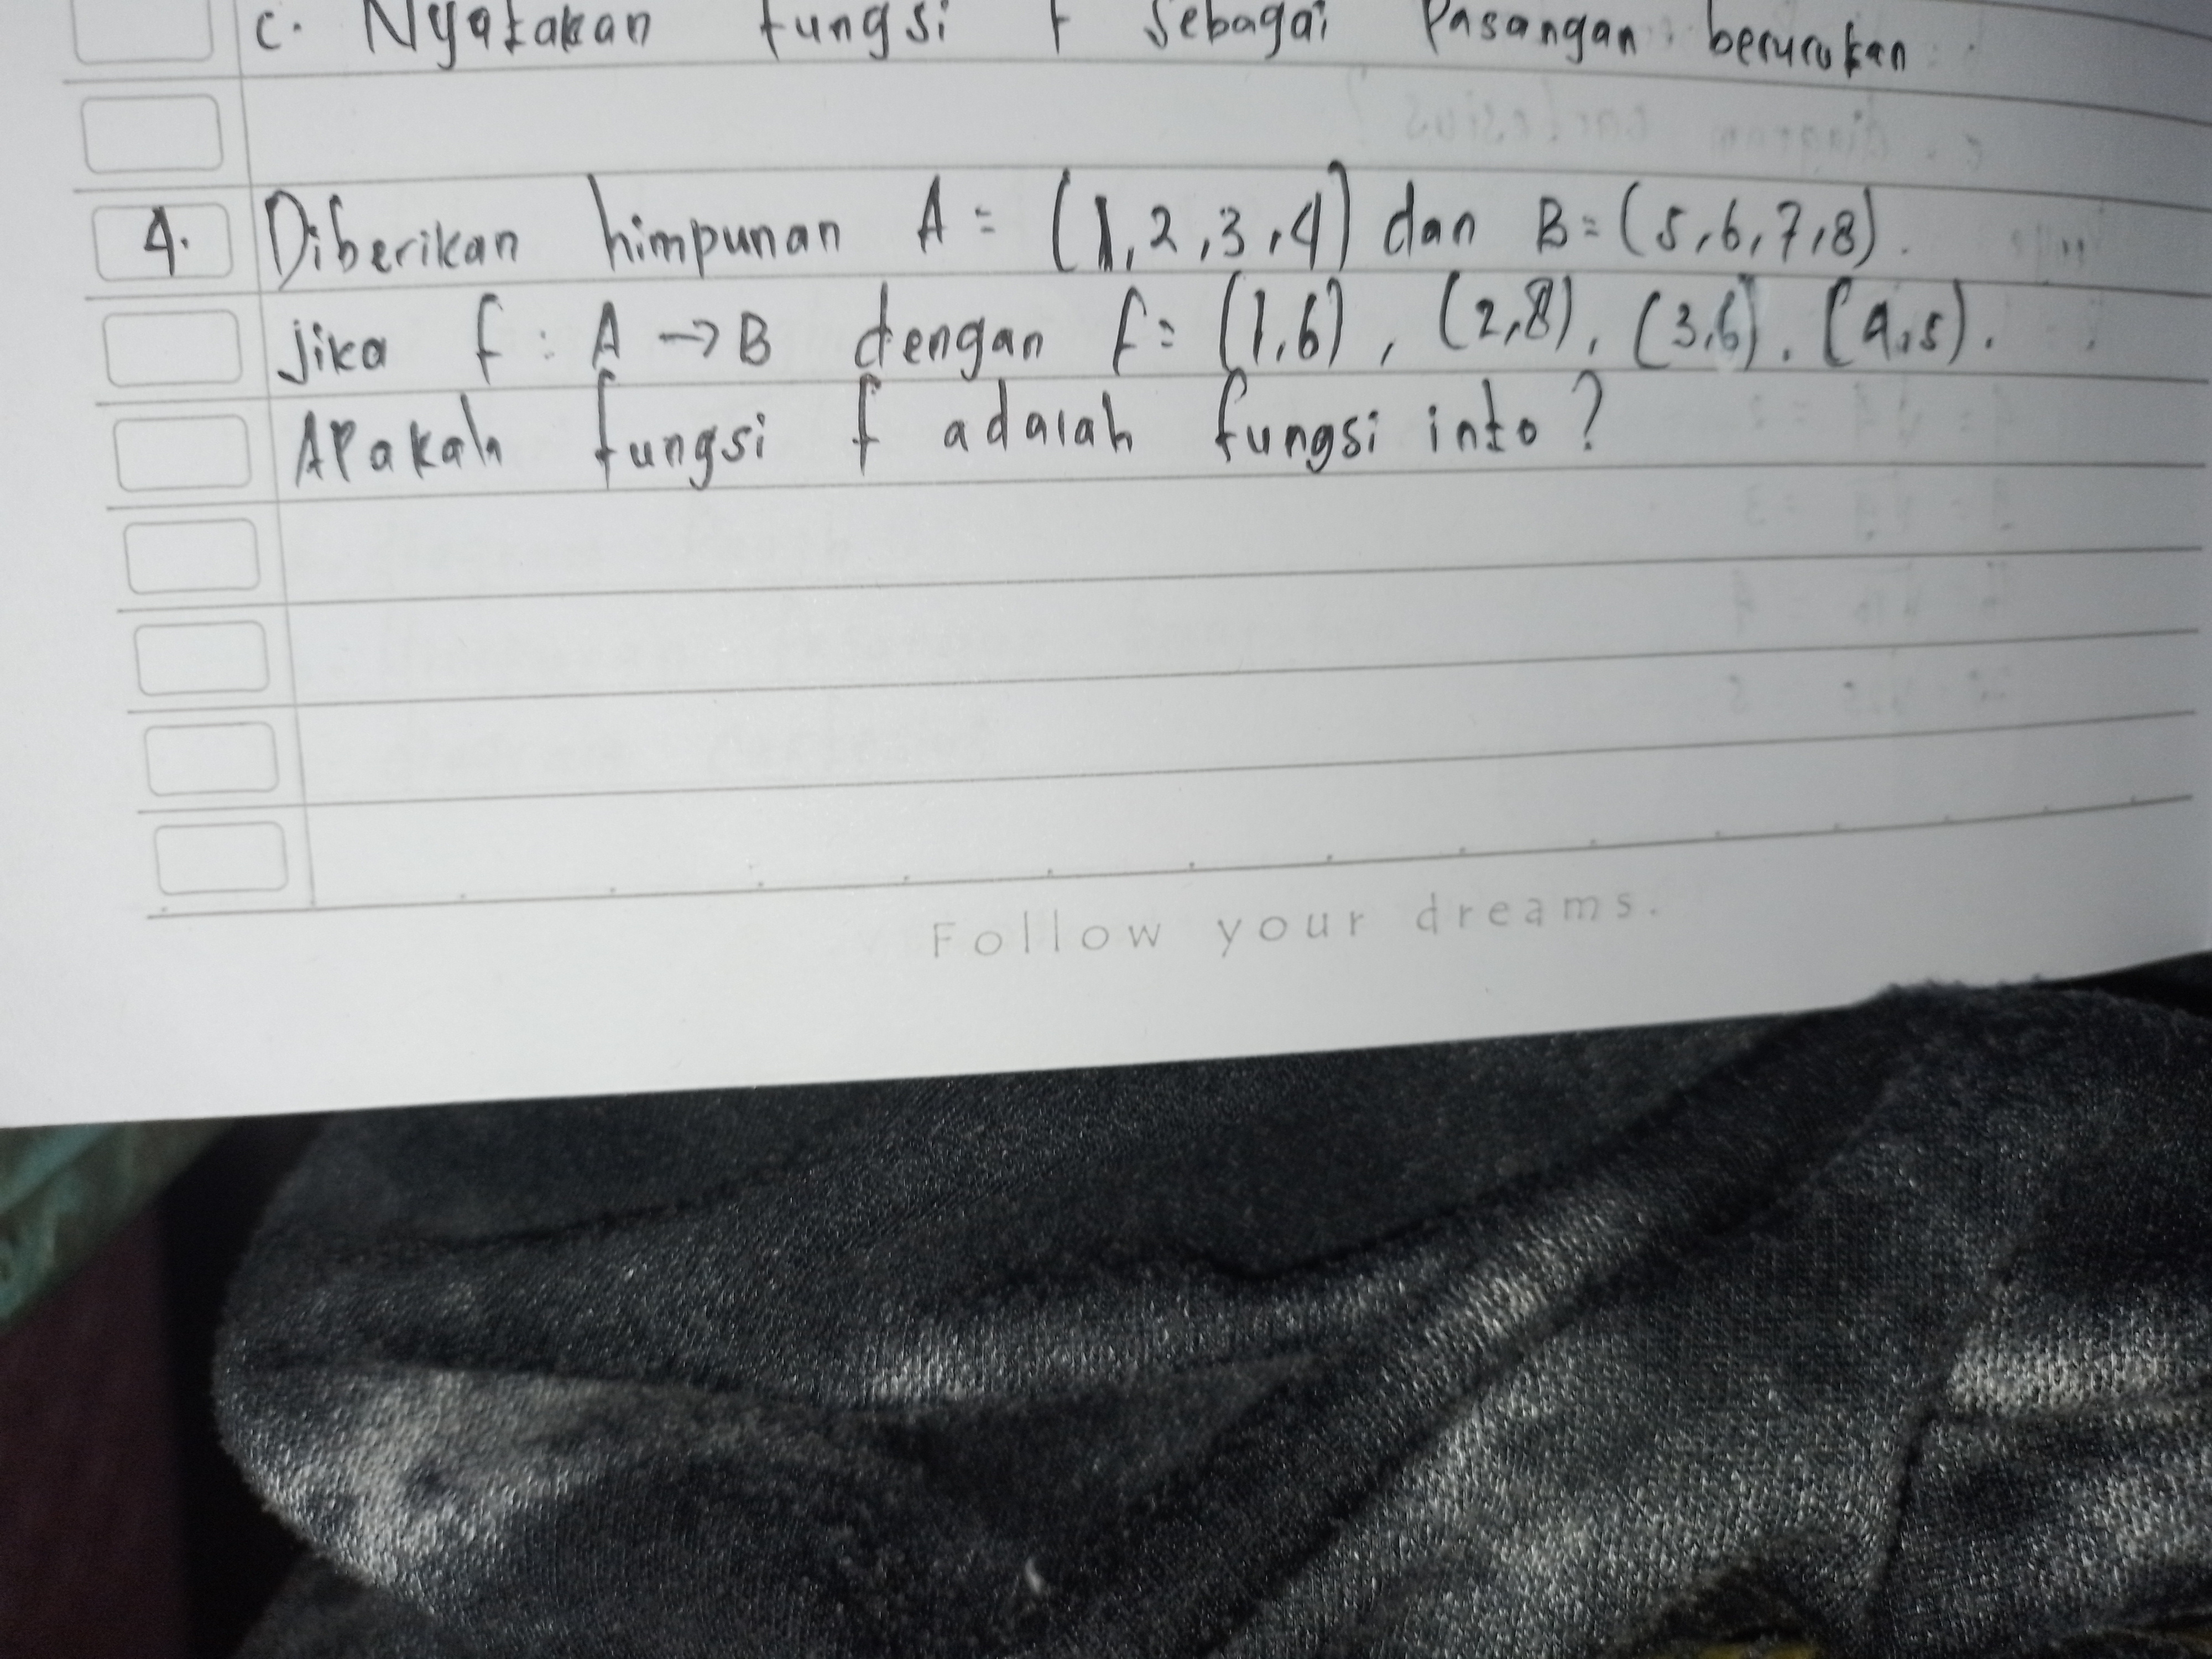 c. Nyatakan fungsi f sebagai Pasangan berurutan
4. Diberikan himpunan A = (1,2,3,4) dan B = (5,6,7,8).
Jika f : A → B dengan f = (1,6), (2,8), (3,6). (4,5).
Apakah fungsi f adalah fungsi into?
Follow your dreams.